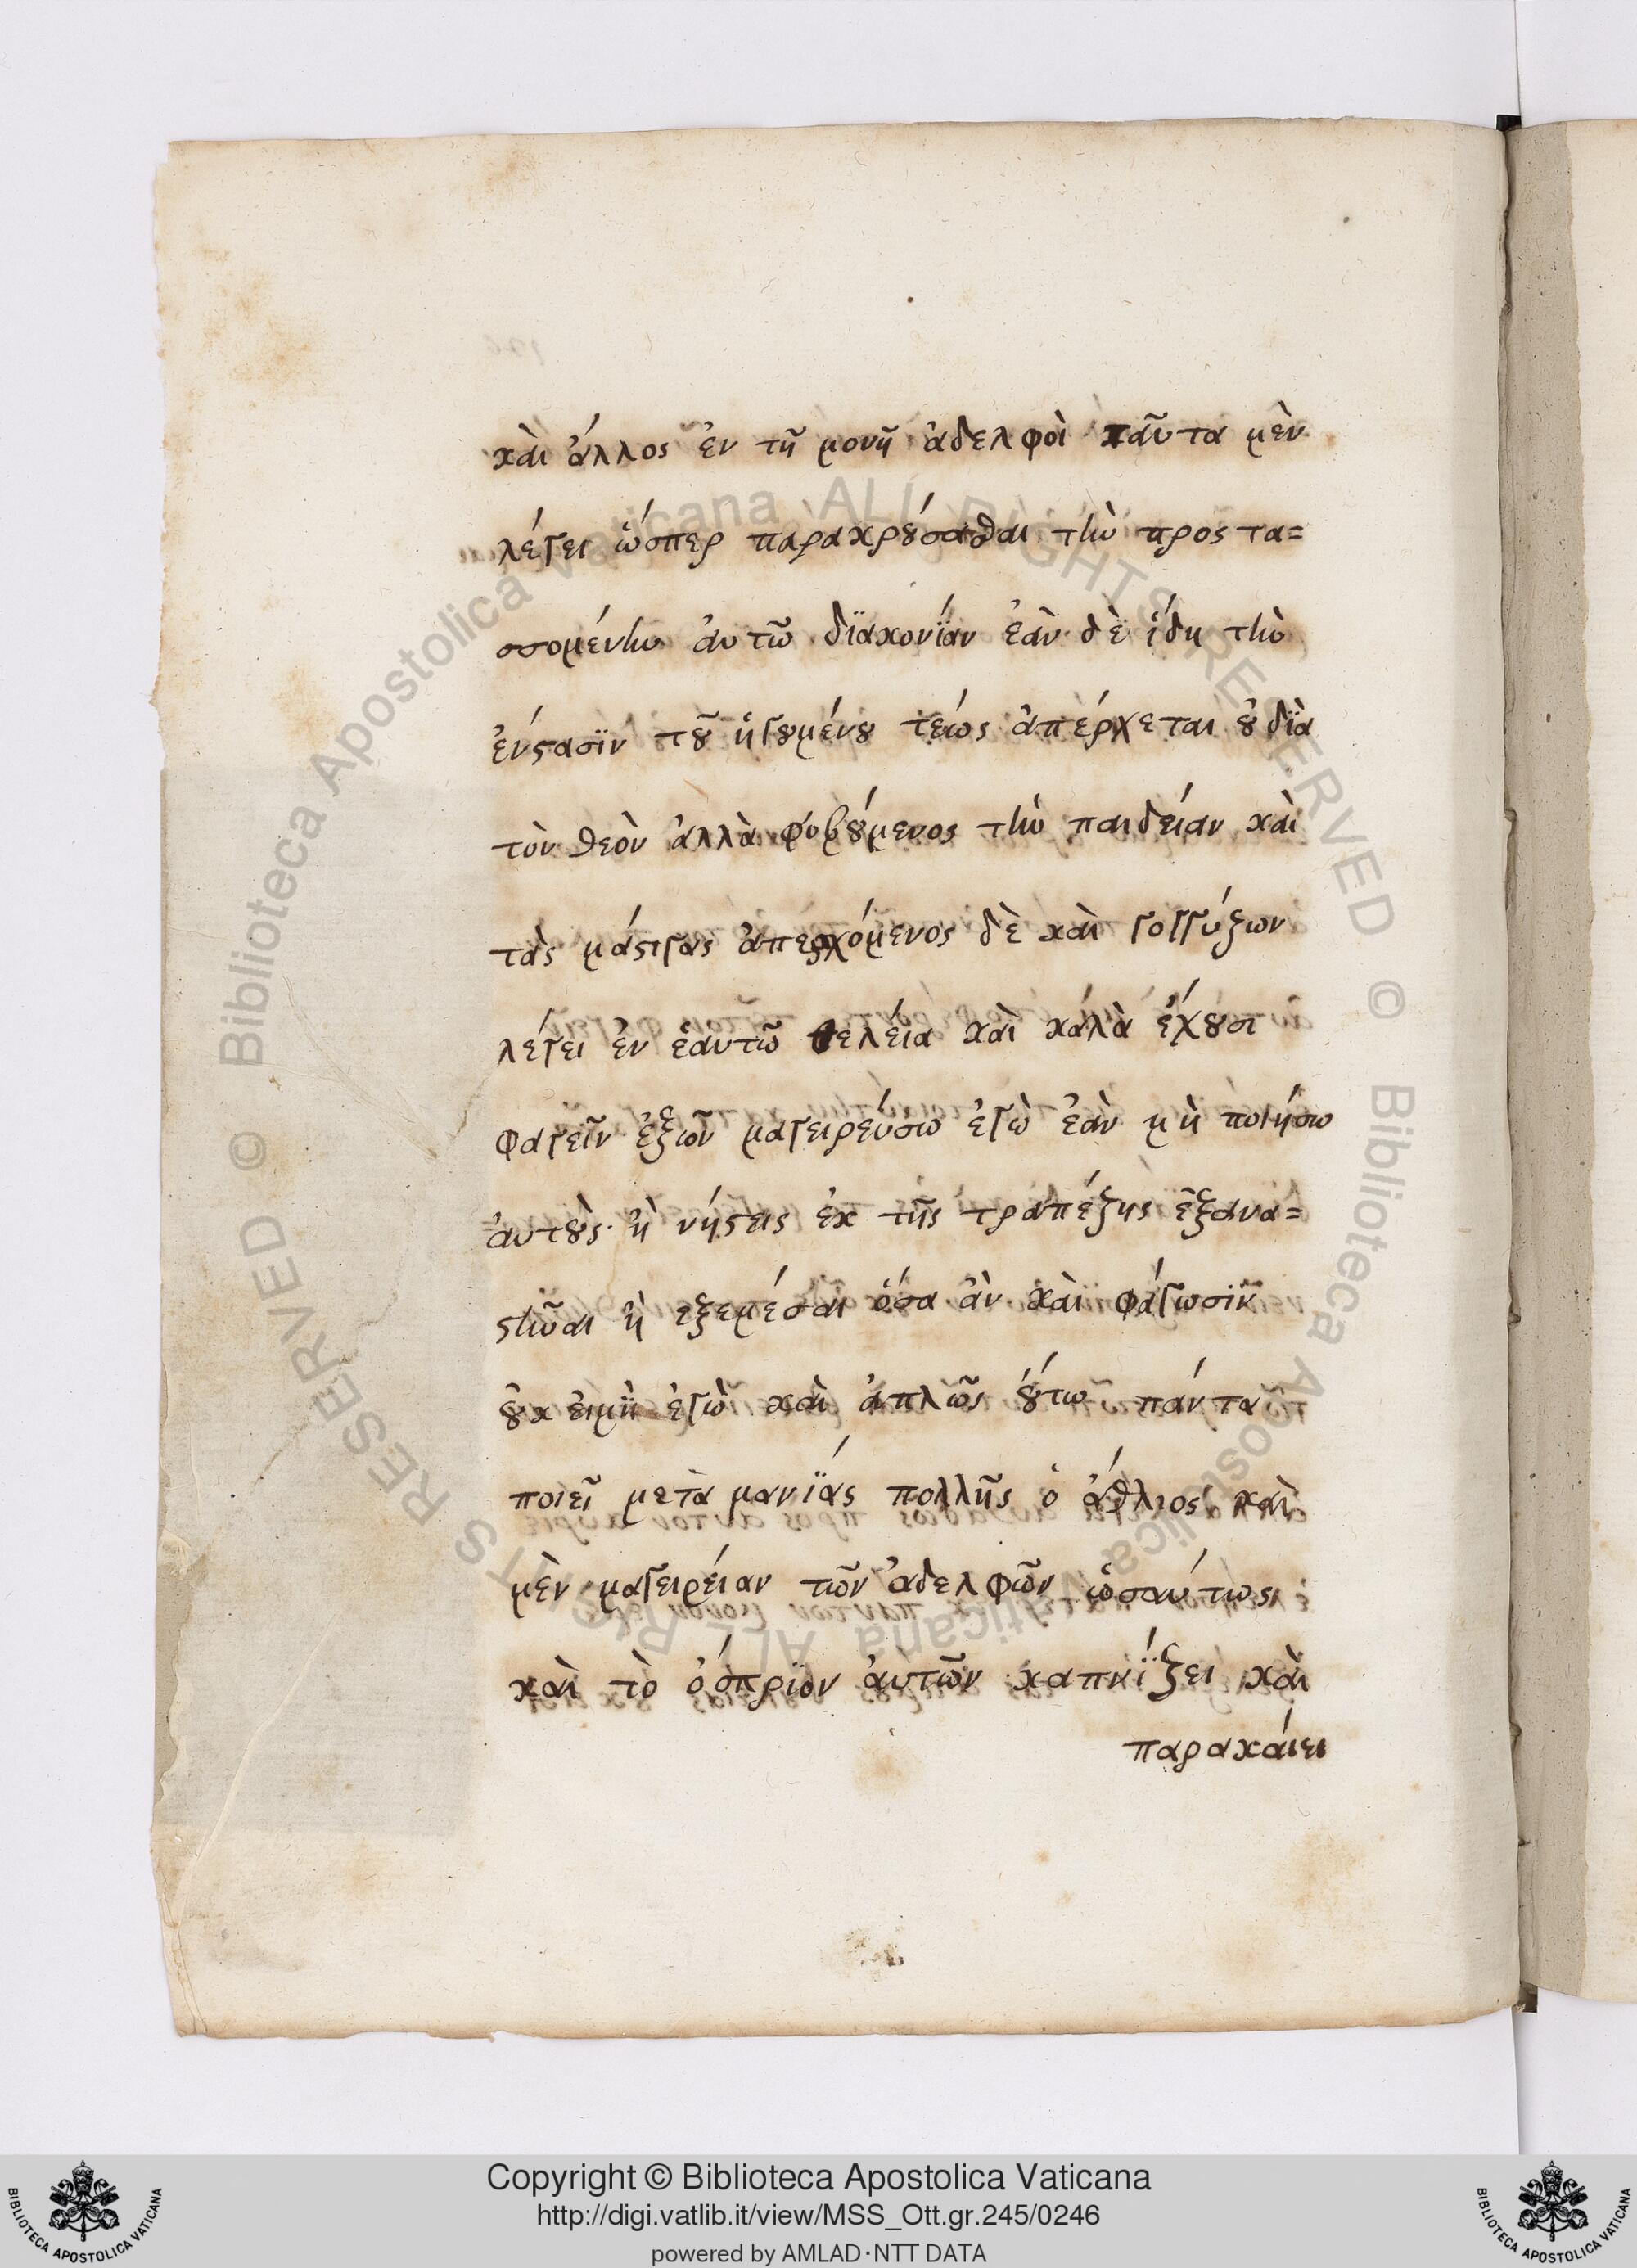 κὰι ἄλλος ἐν τῇ μονῇ ἀδελφοὶ ταῦτα μὲν
λέγει ὥσπερ παρακρούσασθαι τὴν προς τα=
σσομένην ἀυτῶ δϊακονΐαν ἐὰν δὲ ἴδη τὴν
ἐνστασϊν τοῦ ἡγουμένου τέως ἀπέρχεται οὐ δϊὰ
τὸν θεὸν ἀλλὰ φοβούμενος τὴν παιδείαν κὰι
τὰς μάστιγας ἀπερχόμενος δὲ κὰι γογγύζων
λέγει ἐν ἑαυτῶ τελέια κὰι καλὰ ἔχουσι
φαγεῖν ἐξῶν μαγειρέυσω ἐγὼ ἐὰν μὴ ποιήσω
ἀυτοὺς ἢ νήστεις ἐκ τῆς τραπέζης ἐξανα=
στῆναι ἢ εξεμέσαι ὅσα ἂν κὰι φάγωσϊν
οὐκ ἐιμὶ ἐγὼ κὰι ἁπλῶς ὅυτω πάντα
ποιεῖ μετὰ μανΐας πολλῆς ὁ ἄθλιος κὰι
μὲν μαγειρέιαν τῶν ἀδελφῶν ὡσαύτως
κὰι τὸ ὄσπρϊον ἀυτῶν καπνΐζει κὰι
παρακάιει
Copyright © Biblioteca Apostolica Vaticana
http://digi.vatlib.it/view/MSS_Ott.gr.245/0246
powered by AMLAD·NTT DATA